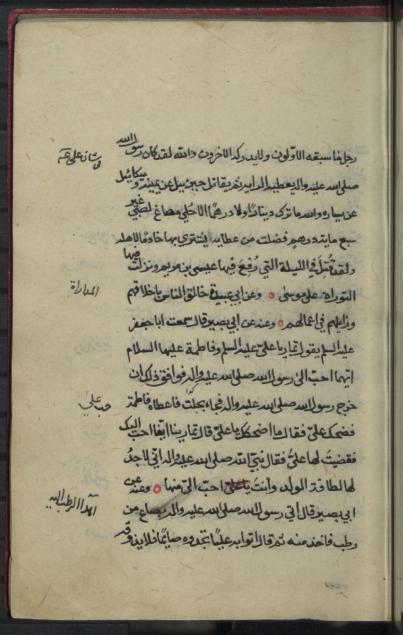 رجل ما سبقه الاوّلون ولا يدركه الاخرون والله لقد كان رسول الله
صلى الله عليه واله يعطيه الراية ثم يقاتل جبرئيل عن يمينه وميكائيل
عن يساره والله ما ترك دينارًا ولا درهمًا الا حُلي مصاغ لصبي غير
سبع مايته درهم فضلت من عطايه يشتري بها خادمًا لاهله
ولقد قُتل في الليلة التي رُفع فيها عيسى بن مريم ونزلت فيها
التوراة على موسى وعن ابي عبيدة خالق الناس باخلاقهم
وزايلهم في اعمالهم وعنه عن ابي بصير قال سمعت ابا جعفر
عليه السلم يقول تماريا علي عليه السلم وفاطمة عليها السلام
ايهما احب الى رسول الله صلى الله عليه واله فوافق ذلك ان
خرج رسول الله صلى الله عليه واله فجاء فاعطاه فاطمة
فضحك علي فقال ما اضحكك يا علي قال تمارينا ايّنا احب اليك
فقضيت لها عليّ فقال نبي الله صلى الله عليه واله اني لاجد
لها لطافة الولد وانت يا علي احب اليّ منها وعنه عن
ابي بصير قال اُتي رسول الله صلى الله عليه واله بصاع من
رطب فاخذ منه ثم قال ائتوا به عليًا تجدوه صايمًا فلا يذوقه
المداراة
حب علي